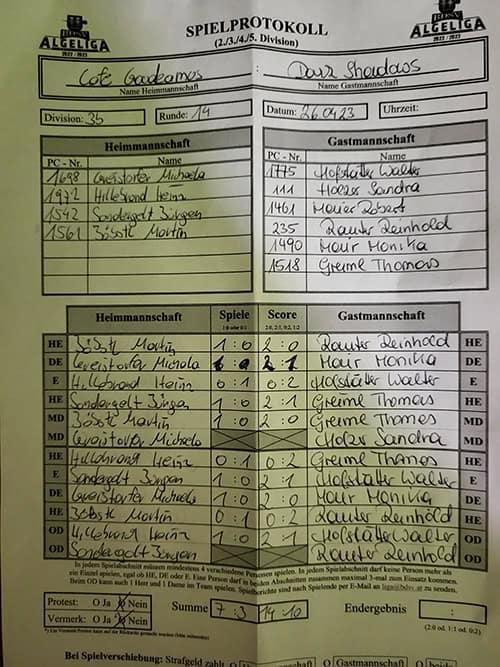 BDSV
ALGELIGA
2022 / 2023
SPIELPROTOKOLL
(2./3./4./5. Division)
BDSV
ALGELIGA
2022 / 2023
Cafe Gaudeamos : Darx Shaudaws
Name Heimmannschaft Name Gastmannschaft
Division: 3b Runde: 14 Datum: 26.04.23 Uhrzeit:
Heimmannschaft Gastmannschaft
PC - Nr. Name PC - Nr. Name
1698 Greistorfer Michaela 1775 Hofstätter Walter
1972 Hillebrand Heinz 111 Holzer Sandra
1542 Sondergelt Jürgen 1461 Maier Robert
1561 Jöbstl Martin 235 Rauter Reinhold
1490 Mair Monika
1518 Greime Thomas
Heimmannschaft Spiele Score Gastmannschaft
1:0 oder 0:1 2:0, 2:1, 0:2, 1:2
HE Jöbstl Martin 1 : 0 2 : 0 Rauter Reinhold HE
DE Greistorfer Michaela 1 : 0 2 : 1 Mair Monika DE
E Hillebrand Heinz 0 : 1 0 : 2 Hofstätter Walter E
HE Sondergelt Jürgen 1 : 0 2 : 1 Greime Thomas HE
MD Jöbstl Martin 1 : 0 2 : 0 Greime Thomas MD
MD Greistorfer Michaela Holzer Sandra MD
HE Hillebrand Heinz 0 : 1 0 : 2 Greime Thomas HE
E Sondergelt Jürgen 1 : 0 2 : 1 Hofstätter Walter E
DE Greistorfer Michaela 1 : 0 2 : 0 Mair Monika DE
HE Jöbstl Martin 0 : 1 0 : 2 Rauter Reinhold HE
OD Hillebrand Heinz 1 : 0 2 : 1 Hofstätter Walter OD
OD Sondergelt Jürgen Rauter Reinhold OD
In jedem Spielabschnitt müssen mindestens 4 verschiedene Personen spielen. In jedem Spielabschnitt darf keine Person mehr als
ein Einzel spielen, egal ob HE, DE oder E. Eine Person darf in beiden Abschnitten zusammen maximal 3-mal zum Einsatz kommen.
Beim OD kann auch 1 Herr und 1 Dame im Team spielen. Spielberichte sind nach Spielende per E-Mail an liga@bdsv.at zu senden.
Protest: O Ja O Nein Summe 7 : 3 14 : 10 Endergebnis :
Vermerk: O Ja O Nein (2:0 od. 1:1 od. 0:2)
*) Ein Vermerk/Protest kann auf der Rückseite gemacht werden (bitte
Bei Spielverschiebung: Strafgeld zahlt O Heimmannschaft O Gastmannschaft